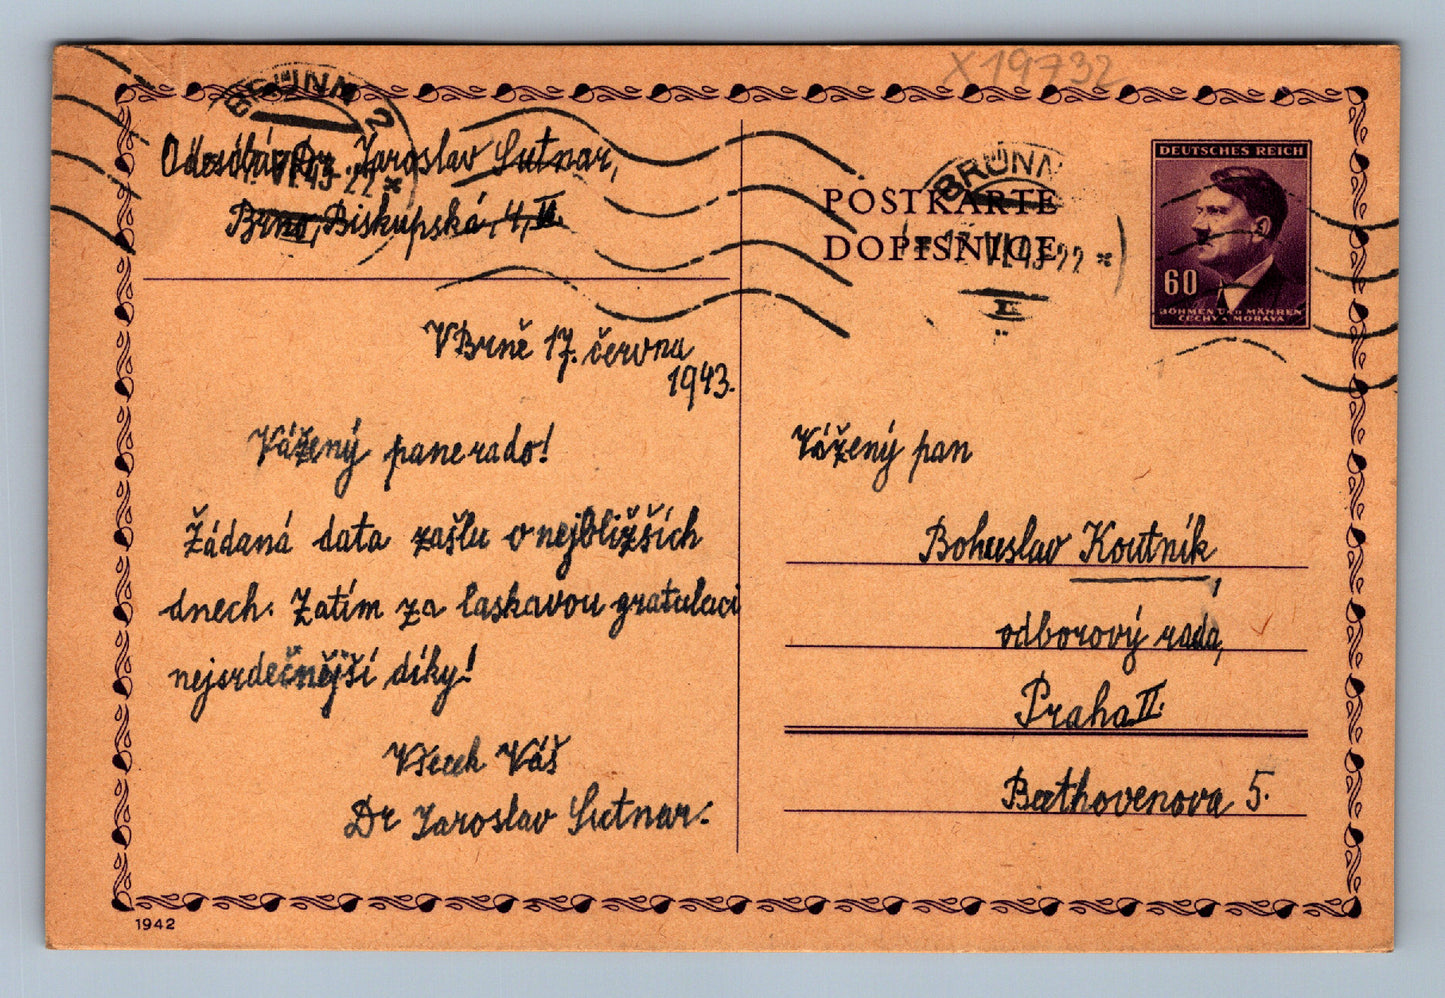 X19732
BRÜNN 2
Odesílá: Dr. Jaroslav Sutnar,
VI.43-22 *
Brno, Biskupská, 4, II.
V Brně 17. června
1943.
Vážený pane rado!
Žádaná data zašlu v nejbližších
dnech. Zatím za laskavou gratulaci
nejsrdečnější díky!
Všecek Váš
Dr Jaroslav Sutnar.
1942
BRÜNN
POSTKARTE
DOPISNICE
17.VI.43-22 *
DEUTSCHES REICH
60
BÖHMEN UND MÄHREN
ČECHY A MORAVA
Vážený pan
Bohuslav Koutník,
odborový rada,
Praha II.
Beethovenova 5.